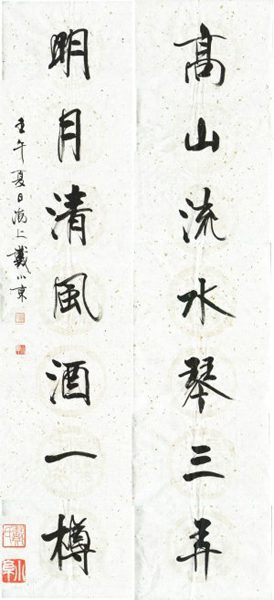 高山流水琴三弄
明月清風酒一樽
壬午夏日海上戴小京